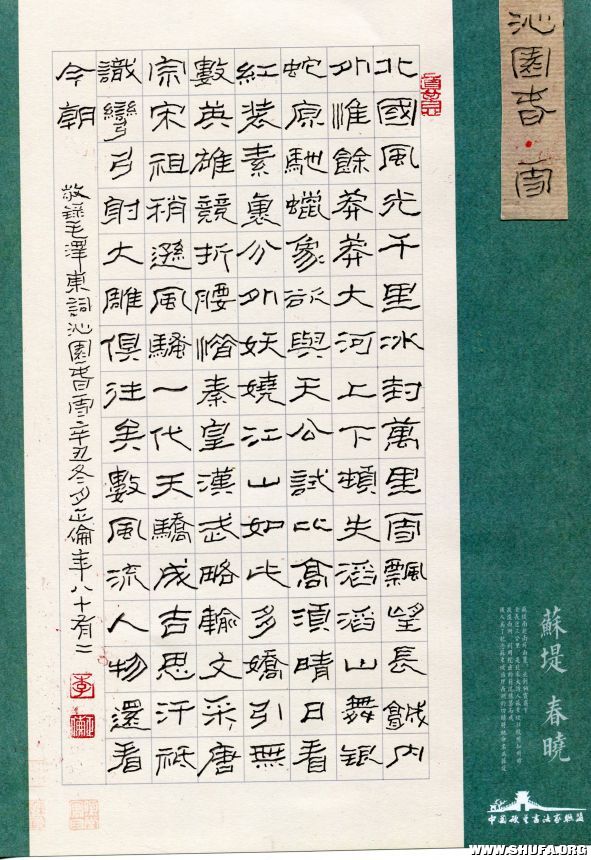 沁園春·雪
北國風光千里冰封萬里雪飄望長城內
外惟餘莽莽大河上下頓失滔滔山舞銀
蛇原馳蠟象欲與天公試比高須晴日看
紅裝素裹分外妖嬈江山如此多嬌引無
數英雄競折腰惜秦皇漢武略輸文采唐
宗宋祖稍遜風騷一代天驕成吉思汗祗
識彎弓射大雕俱往矣數風流人物還看
今朝
敬錄毛澤東詞沁園春雪辛丑冬月正倫年八十有二
李
蘇堤春曉
中國硬筆書法家聯盟
WWW.SHUFA.ORG